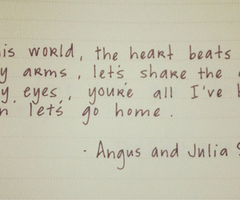 world, the heart beats
arms, let's share the
eyes, you're all I've
let's go home.
- Angus and Julia